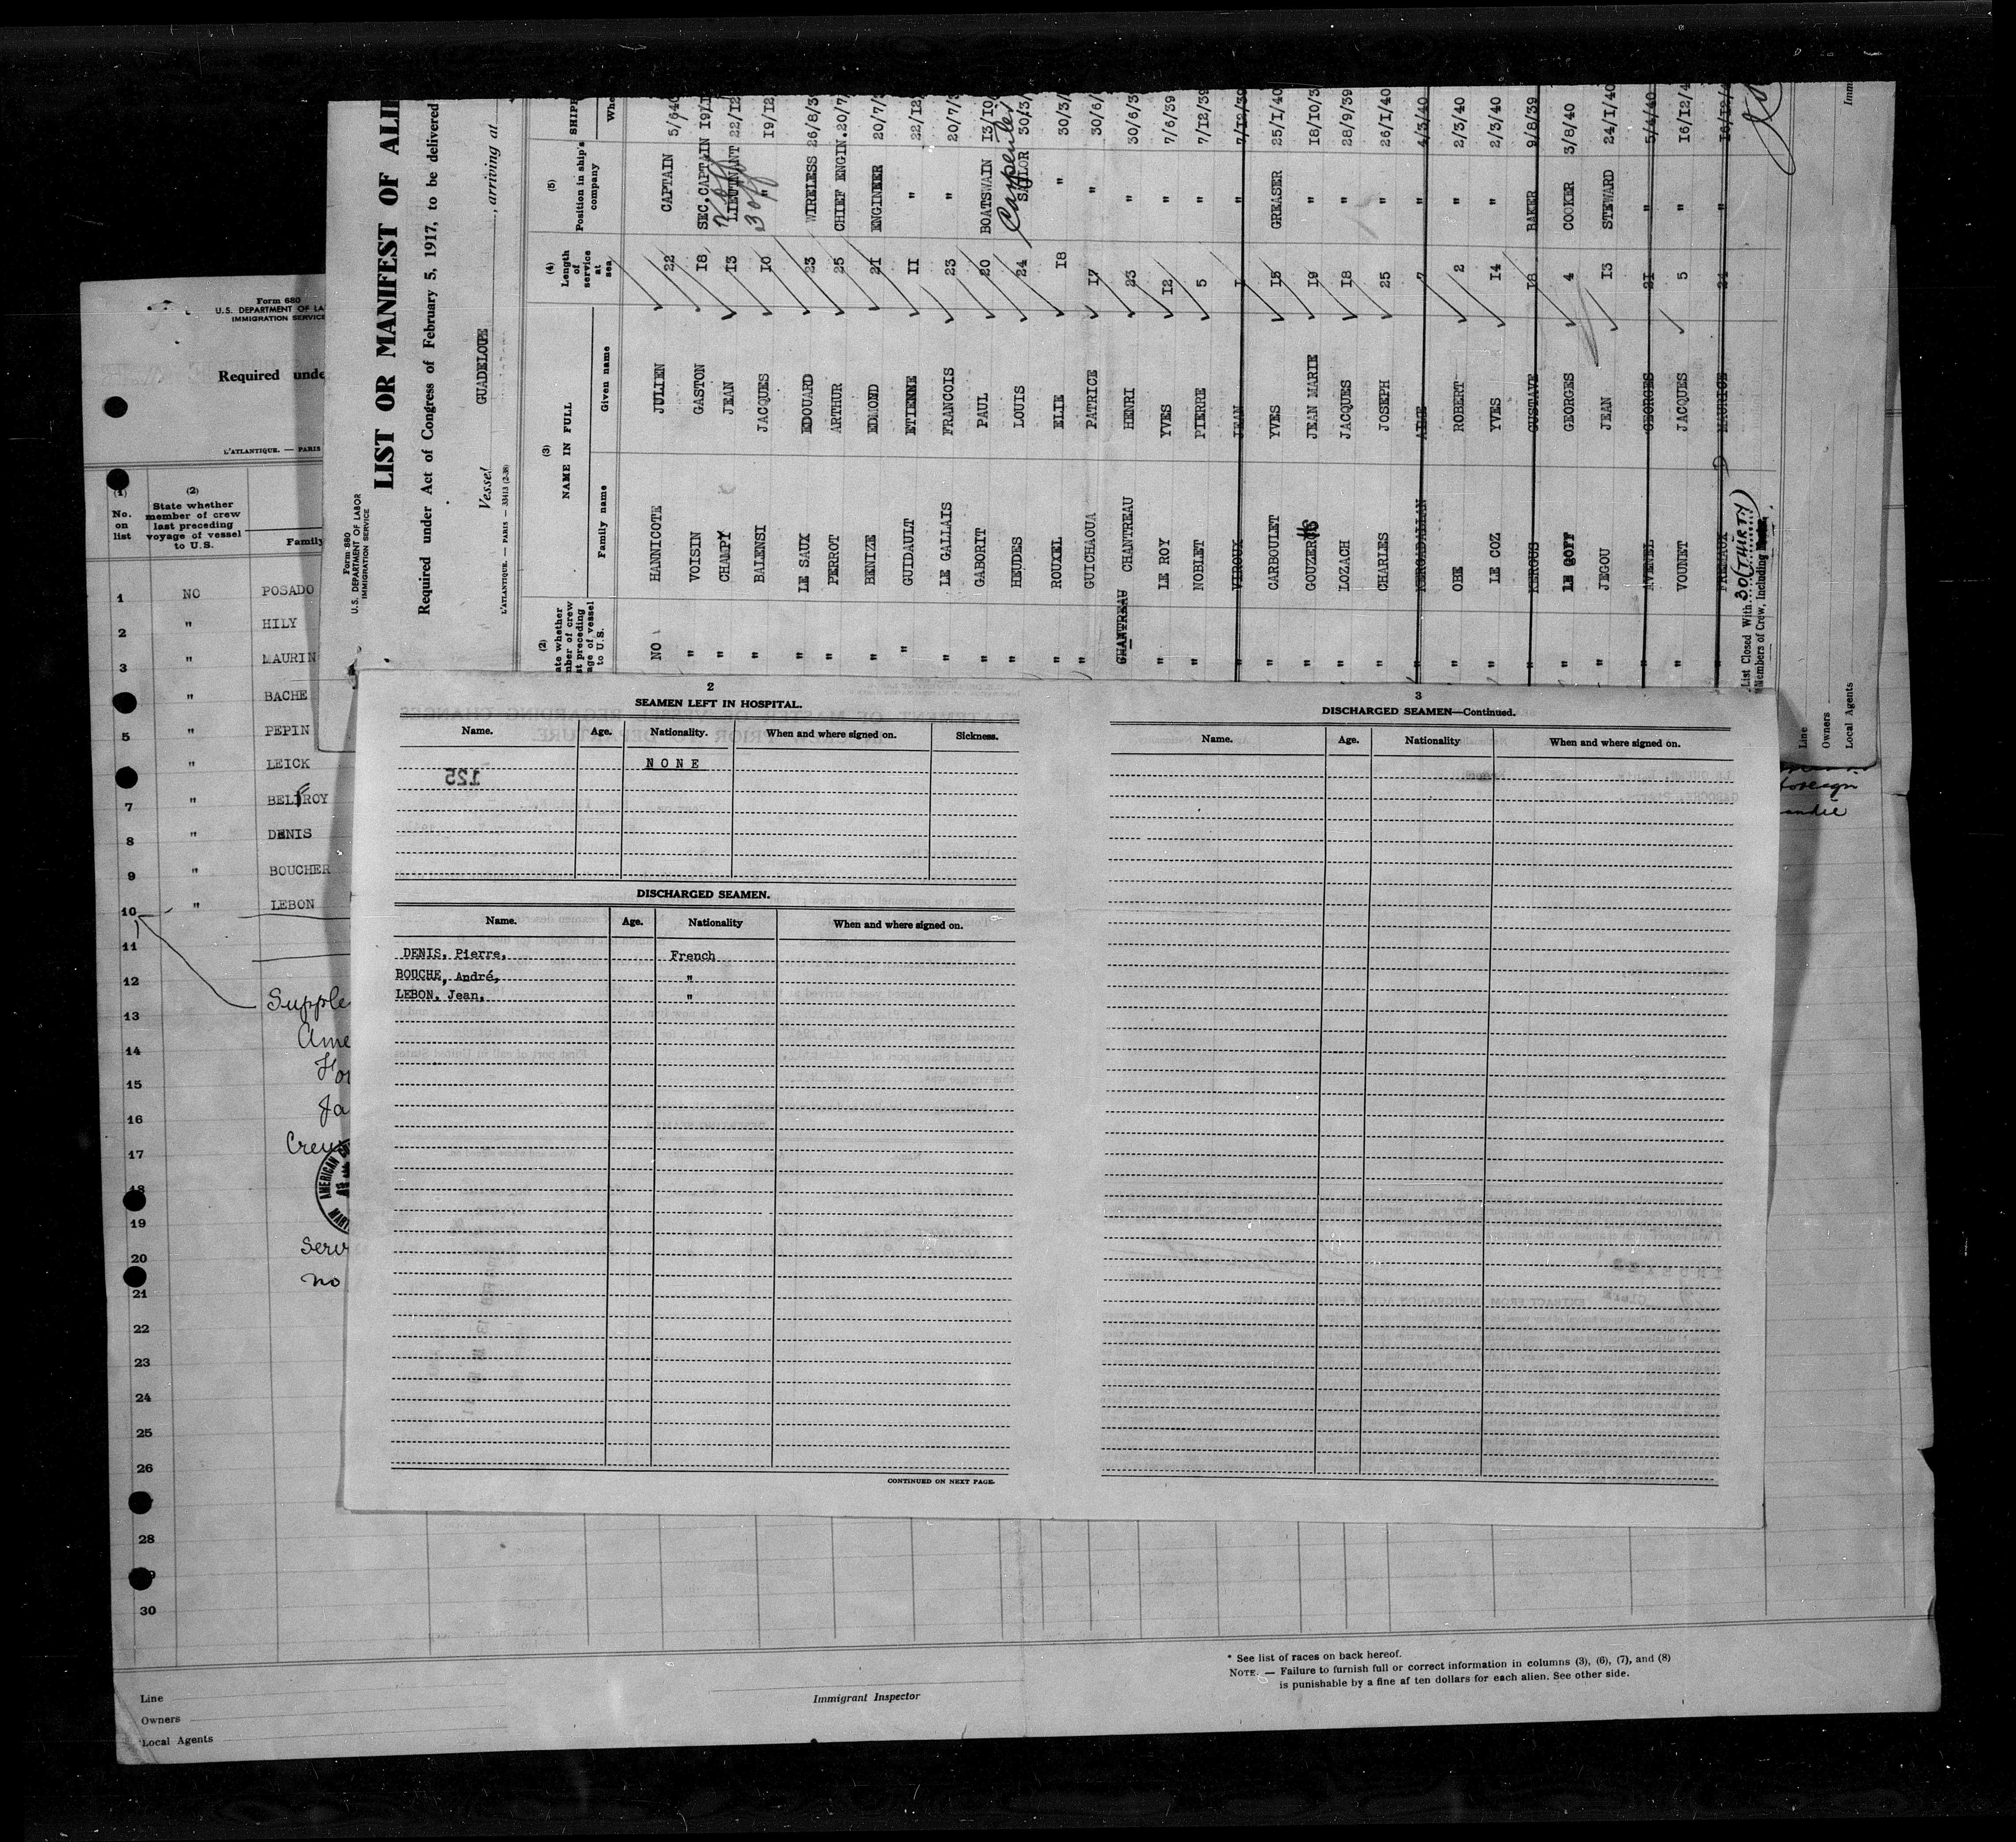 Form 680
U.S. DEPARTMENT OF LA
IMMIGRATION SERVICE
Required unde
L'ATLANTIQUE. — PARIS
(1) (2)
No. on list State whether member of crew last preceding voyage of vessel to U.S. Family
1 NO POSADO
2 " HILY
3 " MAURIN
" BACHE
5 " PEPIN
" LEICK
7 " BELFROY
8 " DENIS
9 " BOUCHER
10 " LEBON
11
12
13
14
15
16
17
18
19
20
21
22
23
24
25
26
28
30
Supple
Ame
Ja
Crew
AMERICAN
Serv
no
Line
Owners
Local Agents
Immigrant Inspector
* See list of races on back hereof.
NOTE. — Failure to furnish full or correct information in columns (3), (6), (7), and (8)
is punishable by a fine af ten dollars for each alien. See other side.
Form 680
U.S. DEPARTMENT OF LABOR
IMMIGRATION SERVICE
LIST OR MANIFEST OF ALI
Required under Act of Congress of February 5, 1917, to be delivered
Vessel GUADELOUPE, arriving at
L'ATLANTIQUE. — PARIS — 33413 (2-38)
(2) (3) (4) (5)
ate whether mber of crew st preceding age of vessel to U.S. NAME IN FULL Length of service at sea Position in ship's company SHIP
Family name Given name Whe
NO HANNICOTE JULIEN 22 CAPTAIN 5/6/40
" VOISIN GASTON 18 SEC.CAPTAIN 19/1
" CHAMPY JEAN 13 LIEUTNANT 2 off 22/12
" BALENSI JACQUES 10 " 3 off 19/12
" LE SAUX EDOUARD 23 WIRELESS 26/8/3
" PERROT ARTHUR 25 CHIEF ENGIN. 20/7/
" BENIZE EDMOND 21 ENGINEER 20/7/
" GUIDAULT ETIENNE 11 " 22/12
" LE GALLAIS FRANCOIS 23 " 20/7/3
" GABORIT PAUL 20 BOATSWAIN 13/10
" HEUDES LOUIS 24 SAILOR Carpenter 30/3/
" ROUXEL ELIE 18 " 30/3/
" GUICHAOUA PATRICE 17 " 30/6/
CHANTREAU CHANTREAU HENRI 23 " 30/6/3
" LE ROY YVES 12 " 7/6/39
" NOBLET PIERRE 5 " 7/12/39
" VIROUX JEAN 1 " 7/12/39
" CARBOULET YVES 15 GREASER 25/1/40
" GOUZERHS JEAN MARIE 19 " 18/10/3
" LOZACH JACQUES 18 " 28/9/39
" CHARLES JOSEPH 25 " 26/1/40
" KERGADALLAN AIME 7 " 4/3/40
" OBE ROBERT 2 " 2/3/40
" LE COZ YVES 14 " 2/3/40
" KERGUS GUSTAVE 18 BAKER 9/8/39
" LE GOFF GEORGES 4 COOKER 3/8/40
" JEGOU JEAN 13 STEWARD 24/1/40
" AVENEL GEORGES 21 " 5/4/40
" VOUNET JACQUES 5 " 16/12/4
" MAURICE 24 " 16/12/4
List Closed With 30 (THIRTY)
Members of Crew, Including
Line
Owners
Local Agents
Imm
foreign
2
SEAMEN LEFT IN HOSPITAL.
Name. Age. Nationality. When and where signed on. Sickness.
NONE
125
DISCHARGED SEAMEN.
Name. Age. Nationality When and where signed on.
DENIS, Pierre, French
BOUCHE, André, "
LEBON, Jean, "
CONTINUED ON NEXT PAGE.
3
DISCHARGED SEAMEN—Continued.
Name. Age. Nationality When and where signed on.